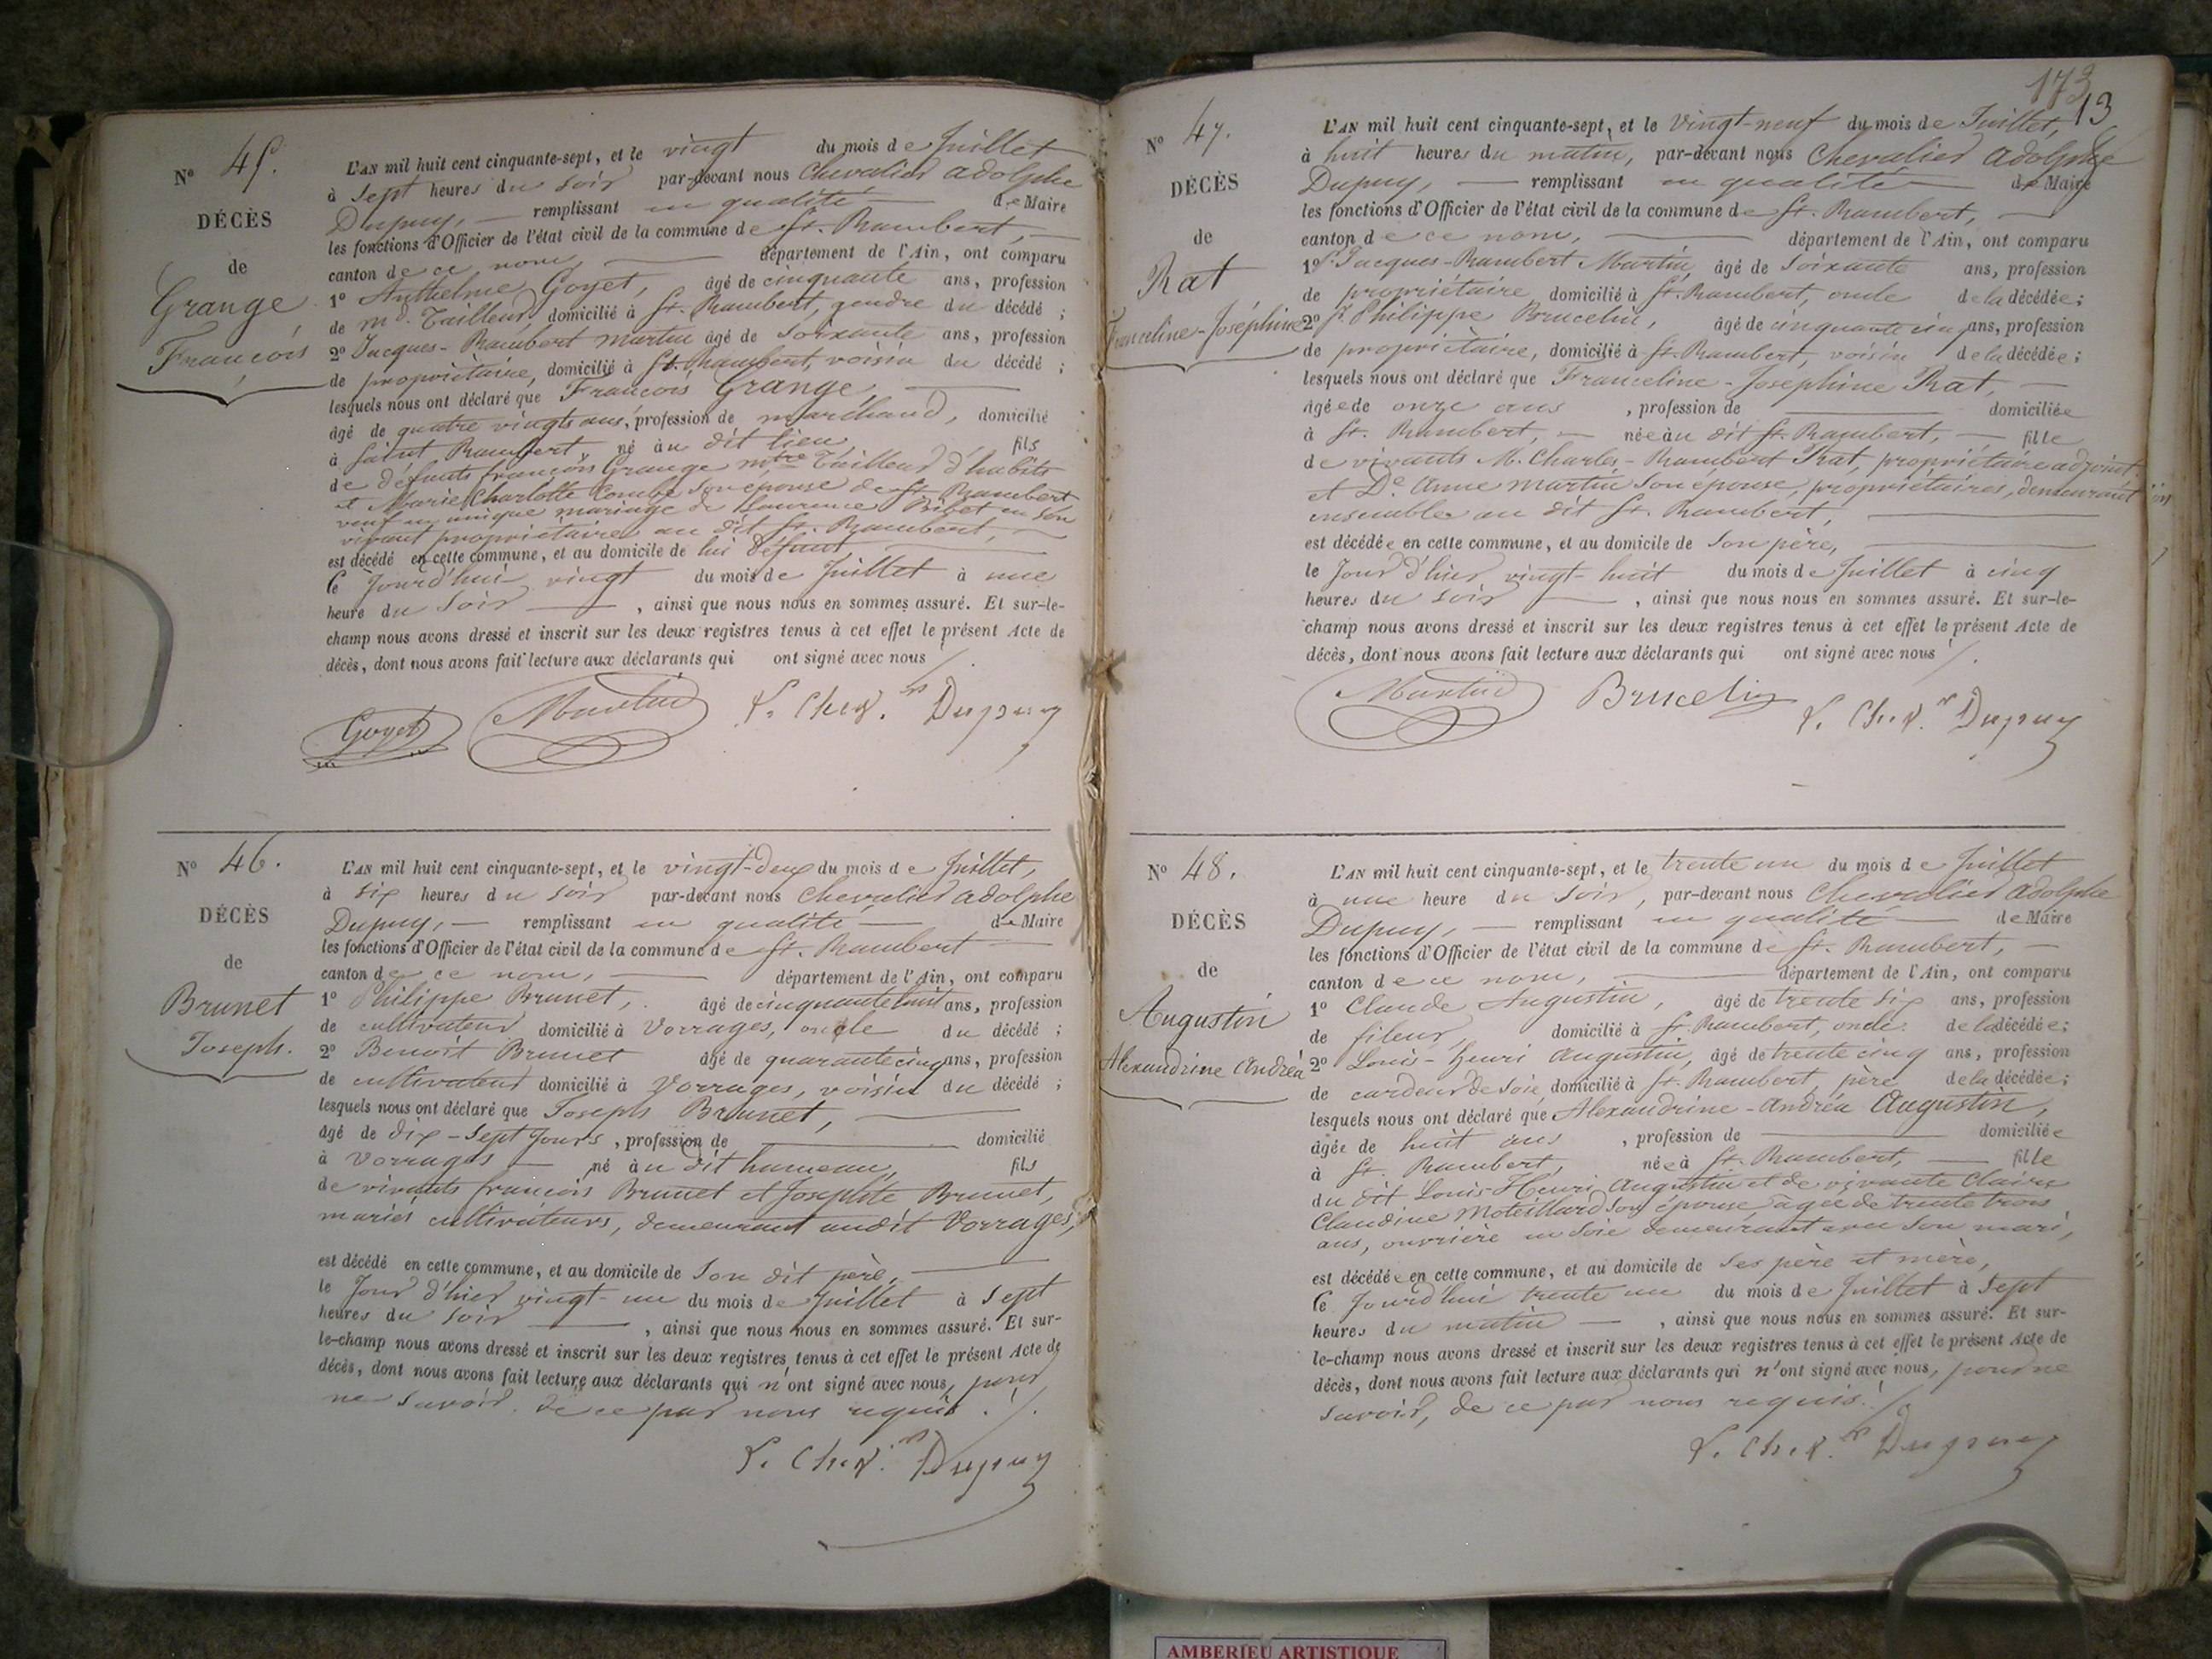 Nº 45.
DÉCÈS
de
Grange
François
L'AN mil huit cent cinquante-sept, et le vingt du mois de Juillet
à Sept heures du Soir par-devant nous Chevalier Adolphe
Dupuy, — remplissant en qualité — de Maire
les fonctions d'Officier de l'état civil de la commune de St. Rambert, —
canton de ce nom, — département de l'Ain, ont comparu
1º Anthelme Goyet, âgé de cinquante ans, profession
de md. Tailleur, domicilié à St. Rambert, gendre du décédé ;
2º Jacques-Rambert Martin âgé de Soixante ans, profession
de propriétaire, domicilié à St. Rambert, voisin du décédé ;
lesquels nous ont déclaré que François Grange, —
âgé de quatre vingts ans, profession de marchand, domicilié
à Saint Rambert, né àu dit lieu, fils
de défunts françois Grange mtre Tailleur d'habits
et Marie Charlotte Combe Son épouse de St. Rambert
veuf en unique mariage de Laurence Bibet en Son
vivant propriétaire au dit St. Rambert, —
est décédé en cette commune, et au domicile de lui défunt, —
Ce Jourd'hui vingt du mois de Juillet à une
heure du Soir — , ainsi que nous nous en sommes assuré. Et sur-le-
champ nous avons dressé et inscrit sur les deux registres tenus à cet effet le présent Acte de
décès, dont nous avons fait lecture aux déclarants qui ont signé avec nous /.
Goyet Martin L. Chev. Dupuy
Nº 46.
DÉCÈS
de
Brunet
Joseph.
L'AN mil huit cent cinquante-sept, et le vingt-deux du mois de Juillet,
à Six heures du Soir par-devant nous Chevalier Adolphe
Dupuy, — remplissant en qualité — de Maire
les fonctions d'Officier de l'état civil de la commune de St. Rambert —
canton de ce nom, — département de l'Ain, ont comparu
1º Philippe Brunet, âgé de cinquante huit ans, profession
de cultivateur domicilié à Vorrages, oncle du décédé ;
2º Benoît Brunet âgé de quarante cinq ans, profession
de cultivateur domicilié à Vorrages, voisin du décédé ;
lesquels nous ont déclaré que Joseph Brunet, —
âgé de dix-Sept Jours, profession de — domicilié
à Vorrages — né àu dit hameau, fils
de vivants françois Brunet et Josephte Brunet,
mariés cultivateurs, demeurant audit Vorrages,
est décédé en cette commune, et au domicile de Son dit père, —
le Jour d'hier vingt-un du mois de Juillet à Sept
heures du Soir — , ainsi que nous nous en sommes assuré. Et sur-
le-champ nous avons dressé et inscrit sur les deux registres tenus à cet effet le présent Acte de
décès, dont nous avons fait lecture aux déclarants qui n'ont signé avec nous, pour
ne Savoir, de ce par nous requis. /.
L. Chev. Dupuy
173
13
Nº 47.
DÉCÈS
de
Rat
Franceline-Joséphine
L'AN mil huit cent cinquante-sept, et le Vingt-neuf du mois de Juillet,
à huit heures du matin, par-devant nous Chevalier Adolphe
Dupuy, — remplissant en qualité — de Maire
les fonctions d'Officier de l'état civil de la commune de St. Rambert, —
canton de ce nom, — département de l'Ain, ont comparu
1º Sr. Jacques-Rambert Martin, âgé de Soixante ans, profession
de propriétaire domicilié à St. Rambert, oncle de la décédée ;
2º Sr. Philippe Brucelin, âgé de cinquante cinq ans, profession
de propriétaire, domicilié à St. Rambert, voisin de la décédée ;
lesquels nous ont déclaré que Franceline-Josephine Rat, —
âgée de onze ans , profession de — domiciliée
à St. Rambert, — née àu dit St. Rambert, — fille
de vivants M. Charles-Rambert Rat, propriétaire adjoint
et De. Anne Martin Son épouse, propriétaires, demeurant
ensemble au dit St. Rambert, —
est décédée en cette commune, et au domicile de Son père, —
le Jour d'hier vingt-huit du mois de Juillet à cinq
heures du Soir — , ainsi que nous nous en sommes assuré. Et sur-le-
champ nous avons dressé et inscrit sur les deux registres tenus à cet effet le présent Acte de
décès, dont nous avons fait lecture aux déclarants qui ont signé avec nous /.
Martin Brucelin L. Chev. Dupuy
Nº 48.
DÉCÈS
de
Augustin
Alexandrine Andréa
L'AN mil huit cent cinquante-sept, et le trente un du mois de Juillet
à une heure du Soir, par-devant nous Chevalier Adolphe
Dupuy, — remplissant en qualité — de Maire
les fonctions d'Officier de l'état civil de la commune de St. Rambert, —
canton de ce nom, — département de l'Ain, ont comparu
1º Claude Augustin, âgé de trente six ans, profession
de fileur, domicilié à St. Rambert, oncle de la décédée ;
2º Louis-Henri Augustin, âgé de trente cinq ans, profession
de cardeur de Soie domicilié à St. Rambert, père de la décédée ;
lesquels nous ont déclaré que Alexandrine-Andréa Augustin,
âgée de huit ans , profession de — domiciliée
à St. Rambert, née à St. Rambert, — fille
du dit Louis-Henri Augustin et de vivante Claire
Claudine Moteillard Son épouse âgée de trente trois
ans, ouvrière en Soie demeurant avec Son mari,
est décédée en cette commune, et au domicile de Ses père et mère,
Ce Jourd'hui trente un du mois de Juillet à Sept
heures du matin — , ainsi que nous nous en sommes assuré. Et sur-
le-champ nous avons dressé et inscrit sur les deux registres tenus à cet effet le présent Acte de
décès, dont nous avons fait lecture aux déclarants qui n'ont signé avec nous, pour ne
Savoir, de ce par nous requis. /.
L. Chev. Dupuy
AMBERIEU ARTISTIQUE